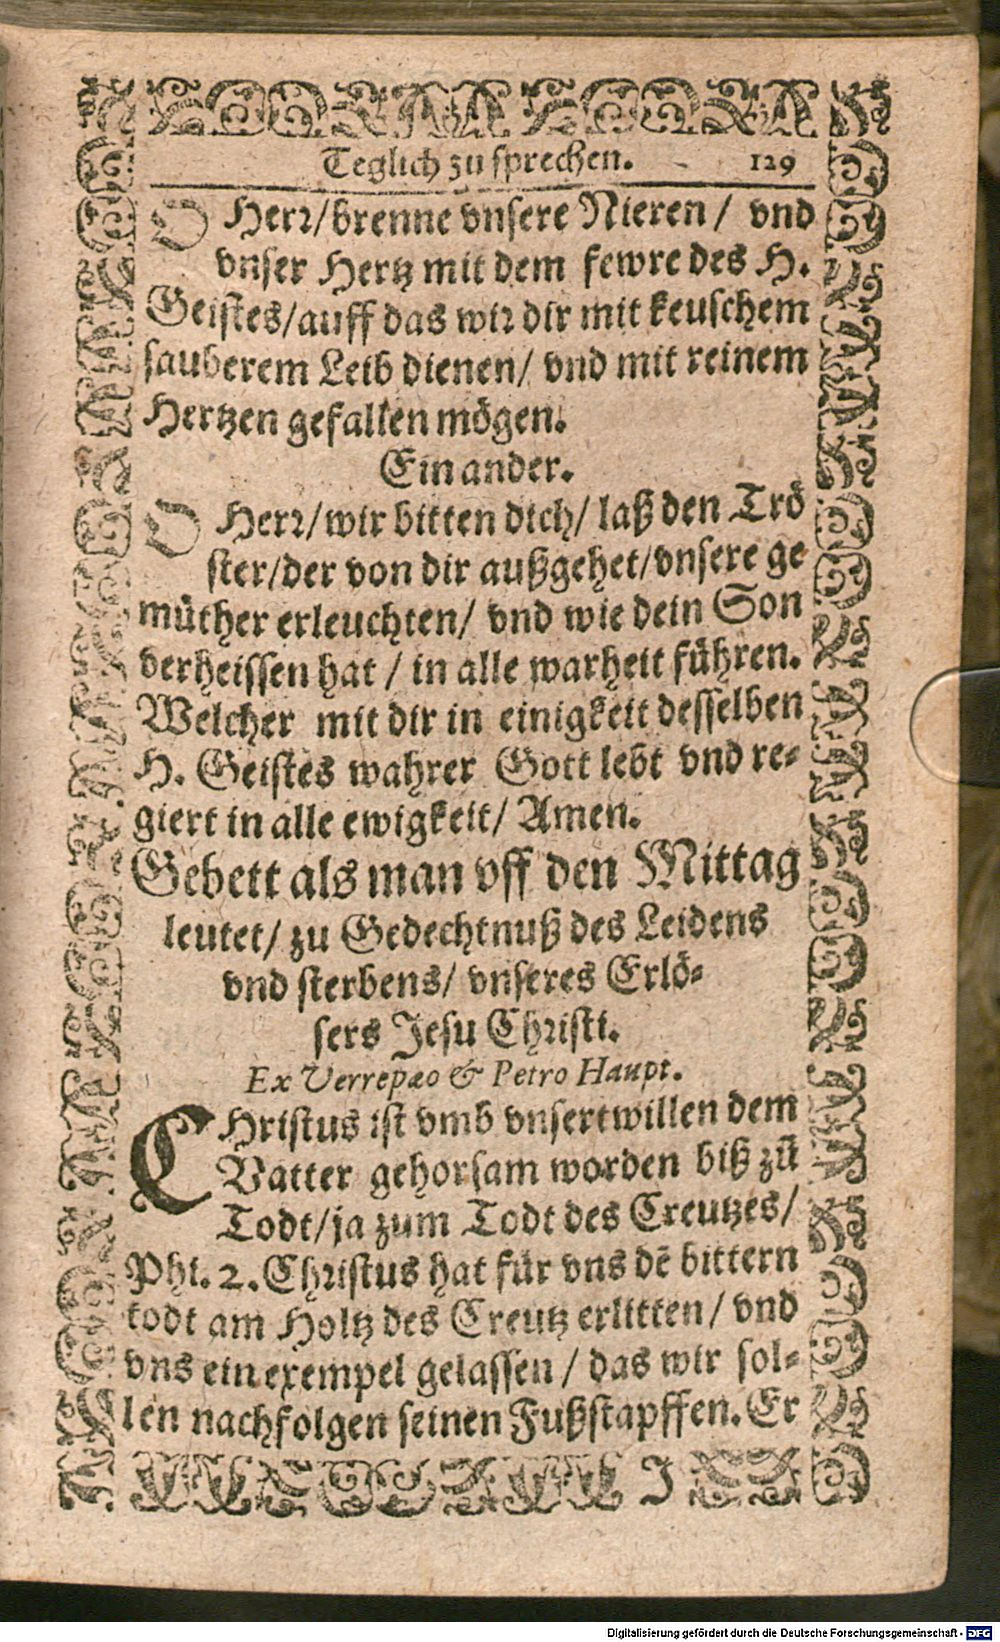 Teglich zu sprechen. 129
O Herr/brenne vnsere Nieren/ vnd
vnser Hertz mit dem fewre des H.
Geistes/auff das wir dir mit keuschem
sauberem Leib dienen/ vnd mit reinem
Hertzen gefallen mögen.
Ein ander.
O Herr/wir bitten dich/ laß den Trö
ster/der von dir außgehet/vnsere ge
müther erleuchten/ vnd wie dein Son
verheissen hat / in alle warheit führen.
Welcher mit dir in einigkeit desselben
H. Geistes wahrer Gott lebt vnd re-
giert in alle ewigkeit/ Amen.
Gebett als man vff den Mittag
leutet/ zu Gedechtnuß des Leidens
vnd sterbens/ vnseres Erlö-
sers Jesu Christi.
Ex Verrepæo & Petro Haupt.
CHristus ist vmb vnsertwillen dem
Vatter gehorsam worden biß zū
Todt/ja zum Todt des Creutzes/
Phi. 2. Christus hat für vns dē bittern
todt am Holtz des Creutz erlitten/ vnd
vns ein exempel gelassen / das wir sol-
len nachfolgen seinen Fußstapffen. Er
J
Digitalisierung gefördert durch die Deutsche Forschungsgemeinschaft - DFG